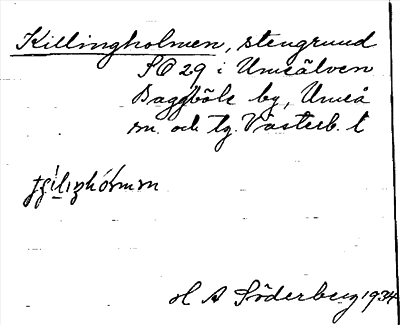 Killingholmen, stengrund
SO 29 i Umeälven
Baggböle by, Umeå
sn. och tg. Västerb. l
H A Söderberg 1934